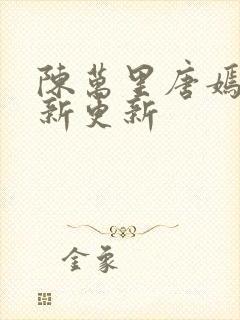 陳萬里唐嫣
新更新
金象